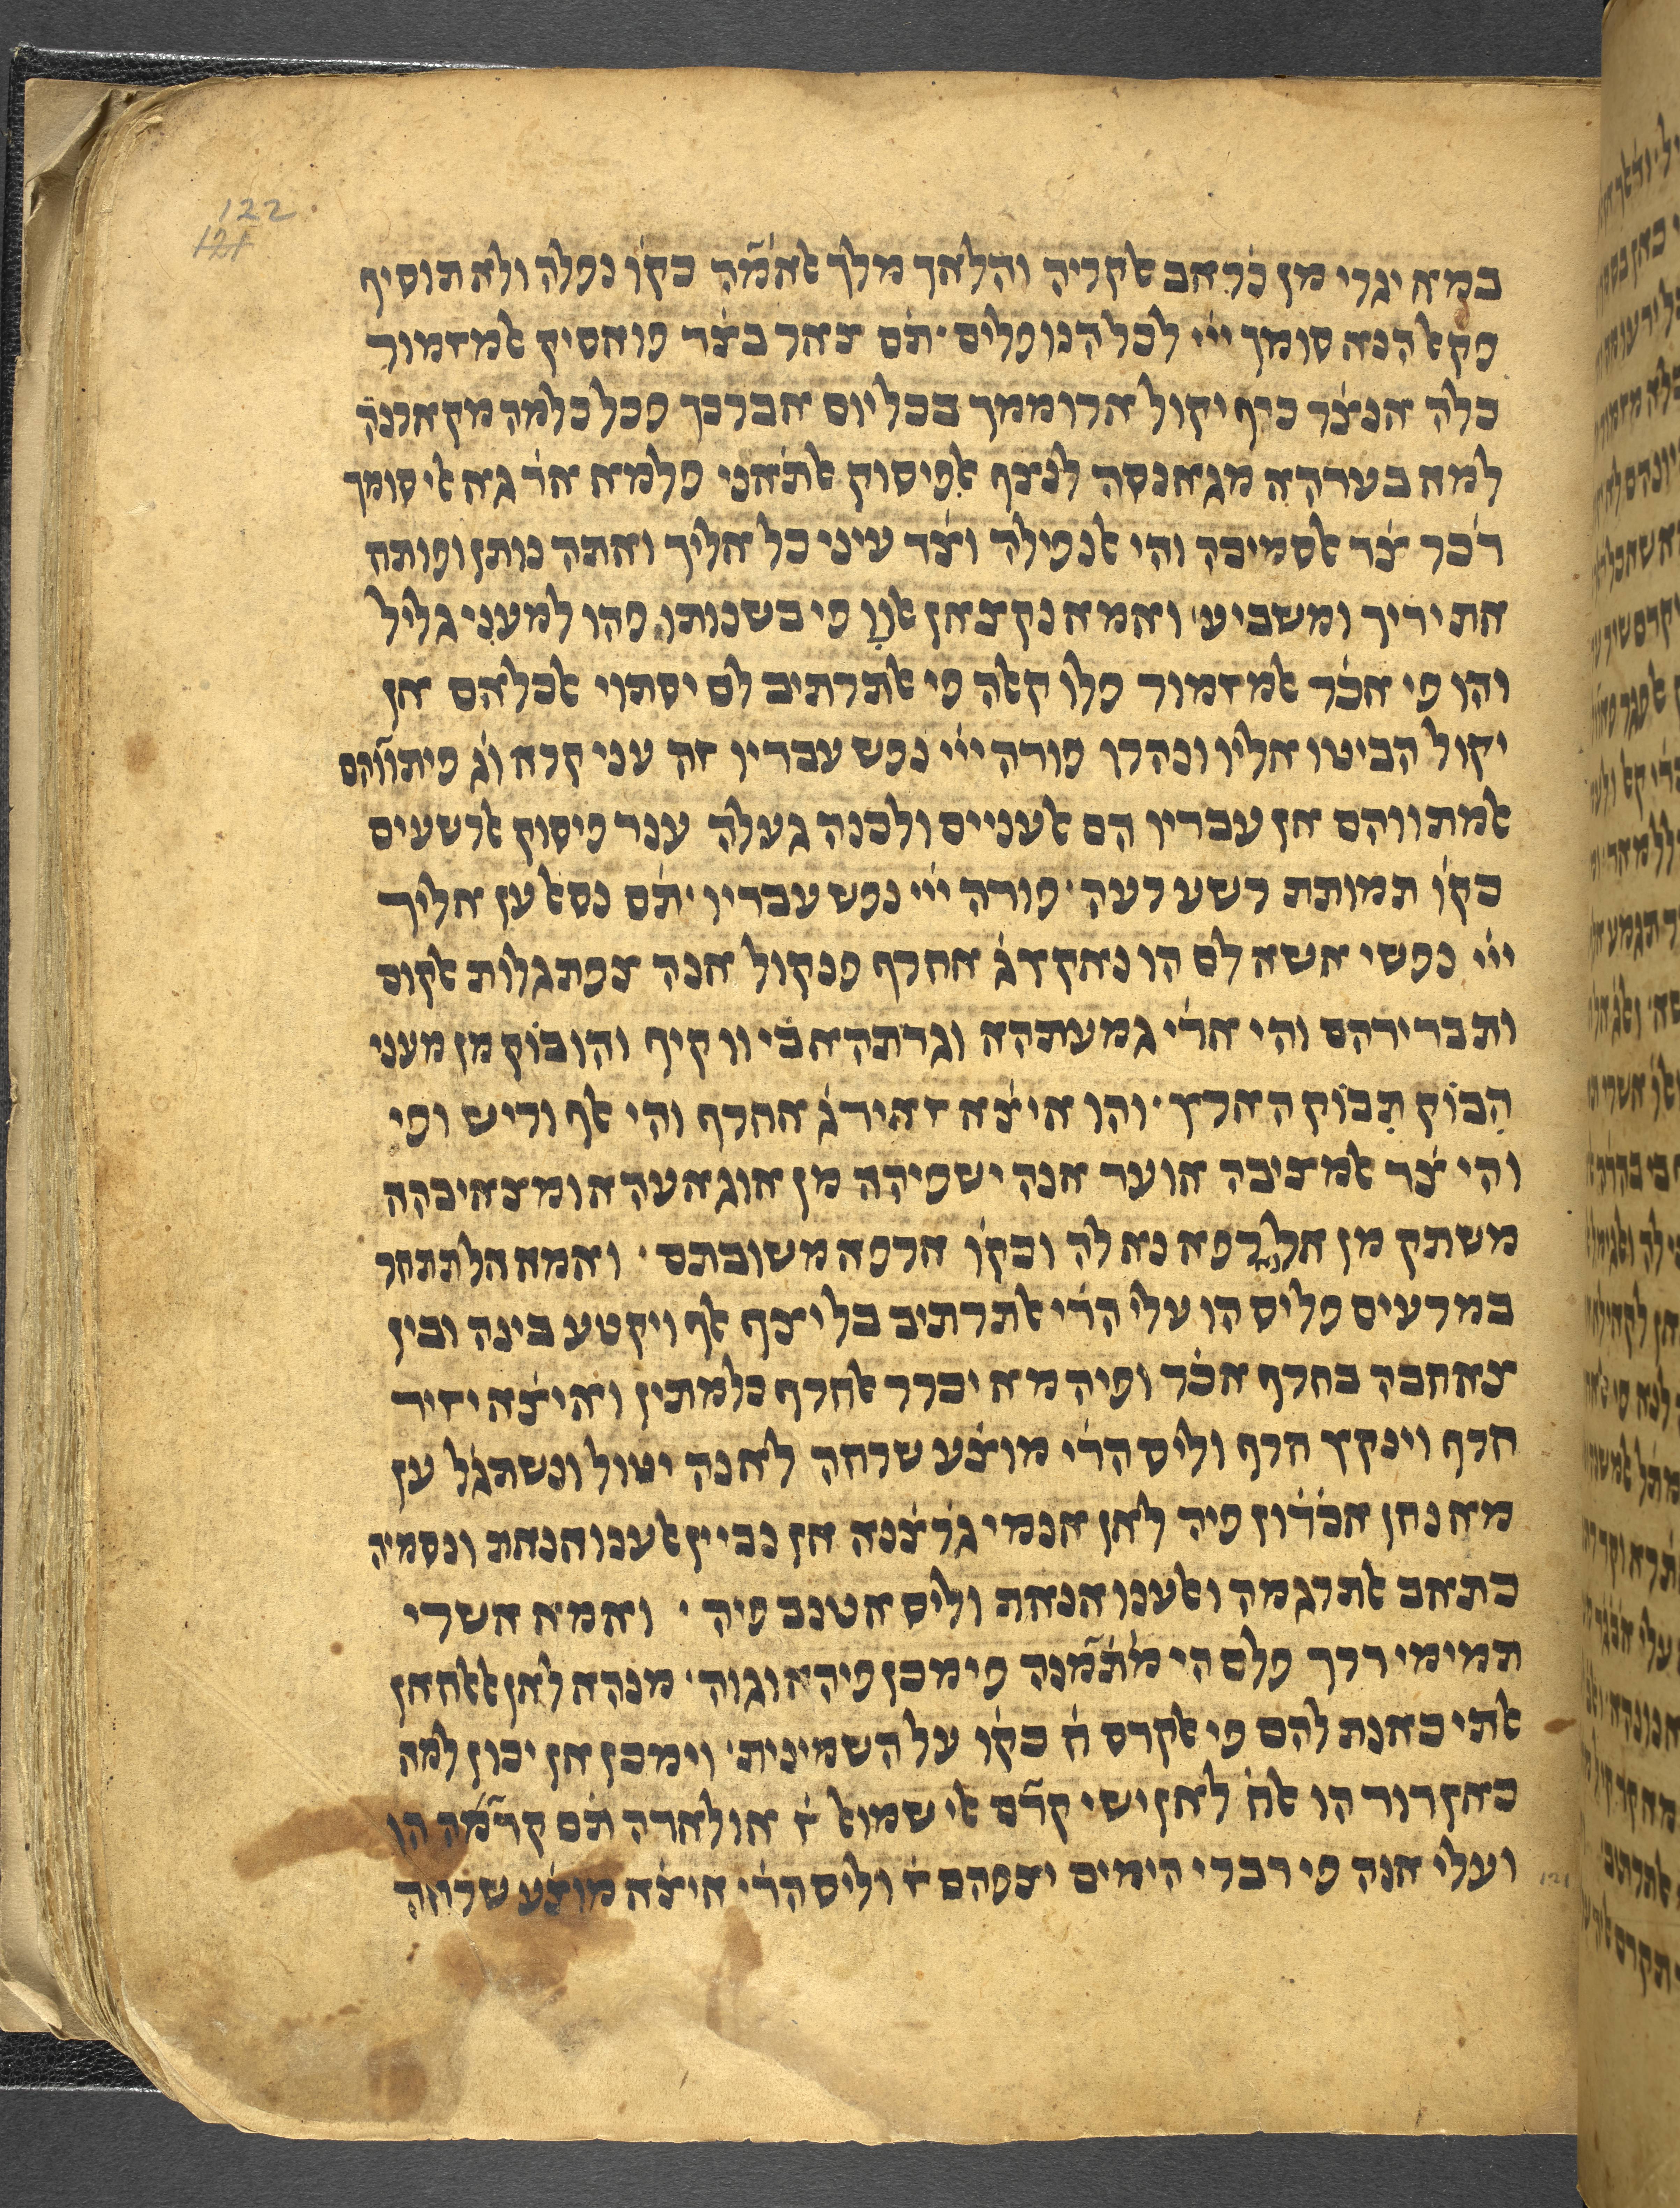 122
121
במא יגרי מן כ֗ראב ﭏקריה והלאך מלך ﭏאמ֗ה כקו֗ נפלה ולא תוסיף
פקﭏ הנא סומך ייי לכל הנופלים ׳ ת֗ם צאר בצ֗ר פואסיק ﭏמזמור
כלה אנצ֗ר כיף יקול ארוממך בכל יום אברכך פכל כלמה מקארנה֗
למא בערהא מגאנסה לנצף ﭏפיסוק ﭏת֗אני פלמא אד֗ גא אי סומך
ד֗כר צ֗ד ﭏסמיכה והי ﭏנפילה וצ֗ד עיני כל אליך ואתה נותן ופותח
את ידיך ומשביע ׳ ואמא נקצאן ﭏוו פי בשנותו פהו למעני גליל
והו פי אכ֗ר ﭏמזמור פלו קﭏה פי ﭏתרתיב לם יסתוי ﭏכלאם אן
יקול הביטו אליו ונהרו פודה ייי נפש עבדיו זה עני קרא וג֗ פיתווהם
ﭏמתווהם אן עבדיו הם ﭏעניים ולכנה געלה ענד פיסוק ﭏרשעים
כקו֗ תמותת רשע רעה ׳ פודה ייי נפש עבדיו ׳ ת֗ם נסﭏ ען אליך
ייי נפשי אשא לם הו נאקץ ג֗ אחרף פנקול אנה צפת גלות ﭏקום
ותבדידהם והי אד֗י גמעתהא וגדתהא בי וו קיף והו בוק מן מעני
הבוק תבוק הארץ ׳ והו איצ֗א זאיד ג֗ אחרף והי ﭏף וריש ופי
והי צ֗ד ﭏמציבה אועד אנה ישפיהה מן אוגאעהא ומצאיבהה
משתק מן אל רפא נא לה וכקו֗ ארפא משובתם ׳ ואמא אל תתחר
במרעים פליס הו עלי הד֗י ﭏתרתיב בל יצף ﭏף ויקטע בינה ובין
צאחבה בחרף אכ֗ר ופיה מא יכרר ﭏחרף כלמתין ואיצ֗א יזיד
חרף וינקץ חרף וליס הד֗י מוצ֗ע שרחה לאנה יטול ונשתגל ען
מא נחן אכ֗ד֗ון פיה לאן אנמי גרצ֗נא אן נביין ﭏענואנאת ונסמיה
כתאב ﭏתרגמה וﭏענואנאת וליס אטנב פיה ׳ ואמא אשרי
תמימי דרך פלם הי מת֗מ֗נה פימכן פיהא וגוה ׳ מנהא לאן ﭏﭏחאן
ﭏתי כאנת להם פי ﭏקדס ח֗ כקו֗ על השמינית ׳ וימכן אן יכון למא
כאן דוד הו ﭏח֗ לאן ישי קד֗ם אי שמוﭏ ז֗ אולאדה ת֗ם קד֗מה הו
ועלי אנה פי דברי הימים יצפהם ז֗ וליס הד֗י איצ֗א מוצ֗ע שרחה
121